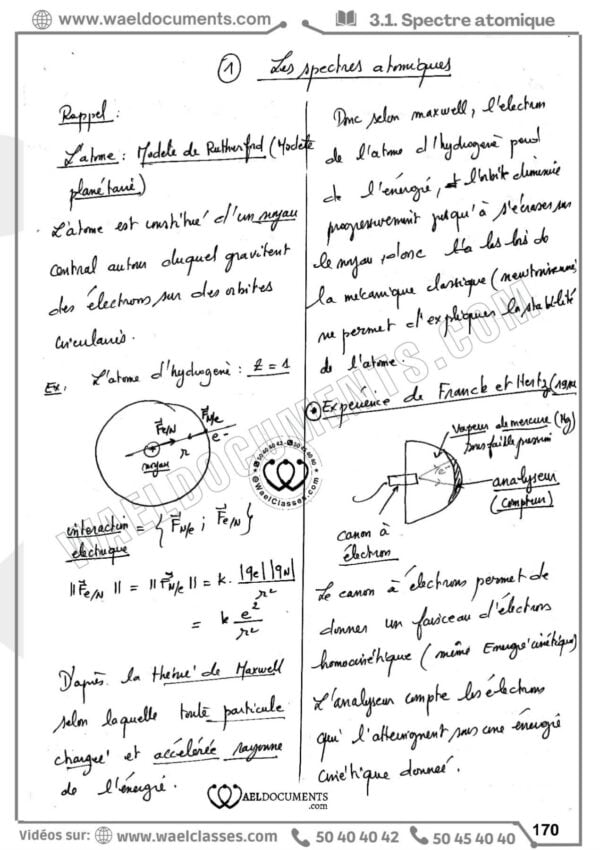 www.waeldocuments.com
3.1. Spectre atomique
① Les spectres atomiques
Rappel:
L'atome: Modèle de Rutherford (Modèle
planétaire)
L'atome est constitué d'un noyau
central autour duquel gravitent
des électrons sur des orbites
circulaires.
Ex: L'atome d'hydrogène: Z=1
F⃗e/N
F⃗N/e
r
e-
noyau
interaction = { F⃗N/e ; F⃗e/N }
électrique
||F⃗e/N || = ||F⃗N/e || = k. |qe| |qN| / r²
= k e² / r²
D'après la théorie de Maxwell
selon laquelle toute particule
chargée et accélérée rayonne
de l'énergie.
Donc selon maxwell, l'électron
de l'atome d'hydrogène perd
de l'énergie, l'orbite diminue
progressivement jusqu'à s'écraser sur
le noyau, donc les lois de
la mécanique classique (newtonienne)
ne permet d'expliquer la stabilité
de l'atome.
Expérience de Franck et Hertz (1914
vapeur de mercure (Hg)
sous faible pression
analyseur
(compteur)
canon à
électron
Le canon à électrons permet de
donner un faisceau d'électrons
homocinétique (même Energie cinétique)
L'analyseur compte les électrons
qui l'atteignent sous une énergie
cinétique donnée.
WAELDOCUMENTS.COM
50 40 40 42 - 50 45 40 40
@WaelClasses.com
WAELDOCUMENTS
.com
170
Vidéos sur: www.waelclasses.com 50 40 40 42 50 45 40 40